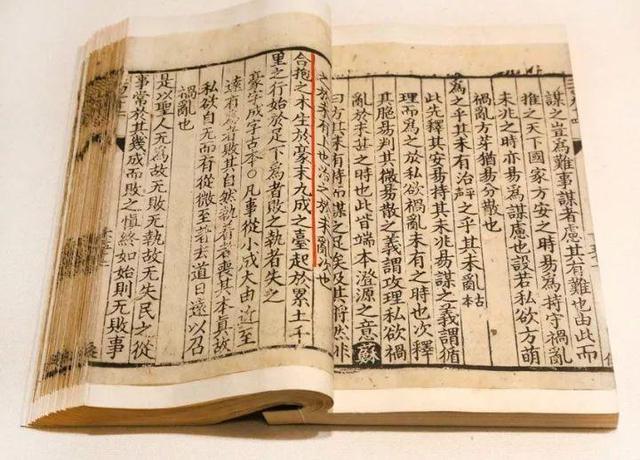 謀之豈為難事謀者慮其有難也由此而
推之天下國家方安之時易為持守禍亂
未兆之時亦易為謀慮也設若私欲方萌
禍亂方芽猶易分散也
為之乎其未有治之乎其未亂
此先釋其安易持其未兆易謀之義謂循
理而為之於私欲禍亂未有之時也次釋
其脆易判其微易散之義謂攻理私欲禍
亂於未甚之時也此皆端本澄源之意蘇
曰方其未有持而謀之足矣及其將然非
之於未有上也治之於未亂次也
合抱之木生於豪末九成之臺起於累土千
里之行始於足下為者敗之執者失之
豪字成字古本○凡事從小成大由近至
遠有為者敗其自然執有者喪其本真故
私欲自无而有從微至著去道日遠以召
禍亂也
是以聖人无為故无敗无執故无失民之從
事常於其幾成而敗之慎終如始則无敗事